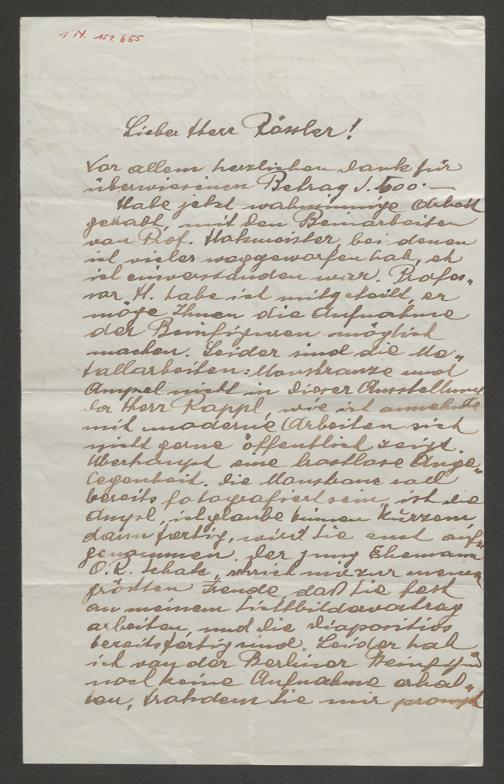 I.N. 151.655
Lieber Herr Rössler!
Vor allem herzlichen Dank für
überwiesenen Betrag S. 500.—
Habe jetzt wahnsinnige Arbeit
gehabt, mit den Beinarbeiten
von Prof. Hakmeister, bei denen
ich vieles weggeworfen hab, eh
ich einverstanden war. Profes-
sor H. habe ich mitgeteilt, er
möge Ihnen die Aufnahme
der Beinfiguren möglich
machen. Leider sind die Me-
tallarbeiten: Monstranze und
Ampel nicht in dieser Ausstellung
da Herr Rappl, wie ich annehme
mit moderne Arbeiten sich
nicht gerne öffentlich zeigt.
Überhaupt eine trostlose Ange-
legenheit. Die Monstranz soll
bereits fotografiert sein, ist die
Ampl, ich glaube binnen kurzem
dann fertig, wird sie erst auf-
genommen. Der jung Ehemann
O.R. Schatz, schrieb mir zur meine
größten Freude, daß Sie fest
an meinem Lichtbildervortrag
arbeiten und die Diapositivs
bereits fertig sind. Leider hab
ich von der Berliner
noch keine Aufnahme erhal-
ten, trotzdem Sie mir prompt